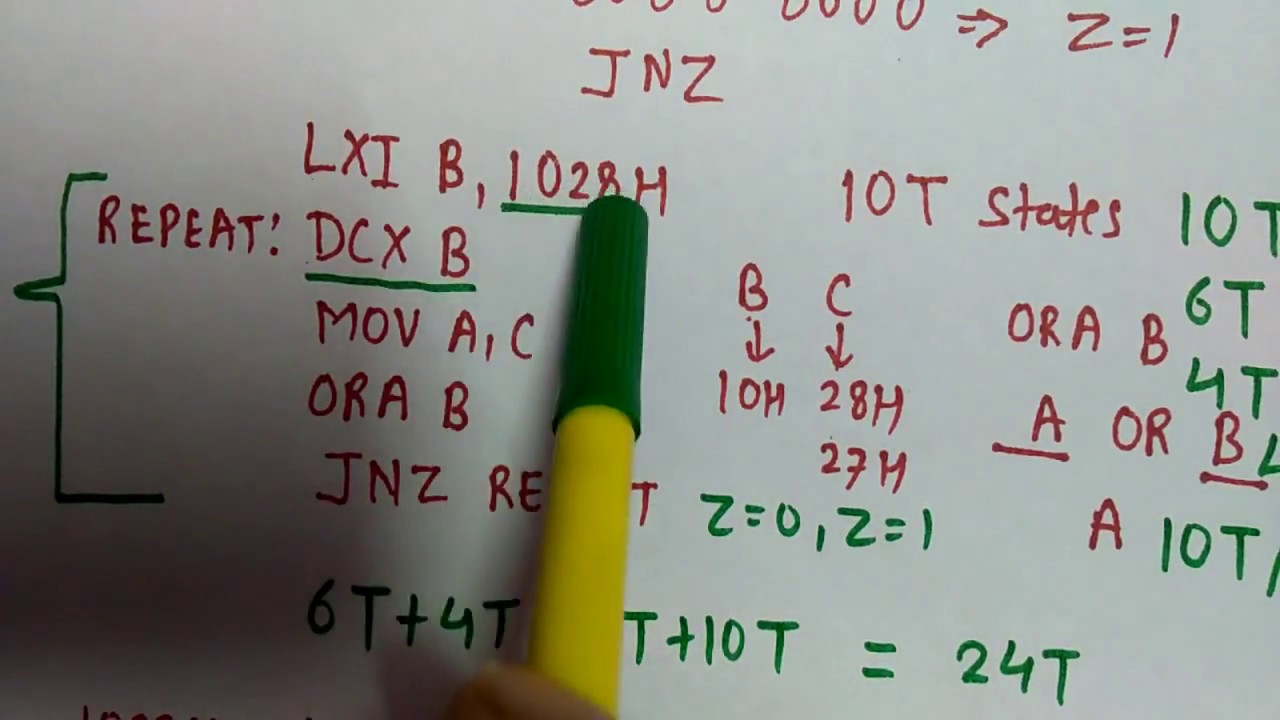 0000 0000 ⇒ Z=1
JNZ
LXI B, 1028H 10T states 10T
REPEAT: DCX B
B C 6T
MOV A, C ORA B
↓ ↓
ORA B 10H 28H 4T
A OR B
27H
JNZ
Z=0, Z=1 A 10T/
6T+4T T+10T = 24T